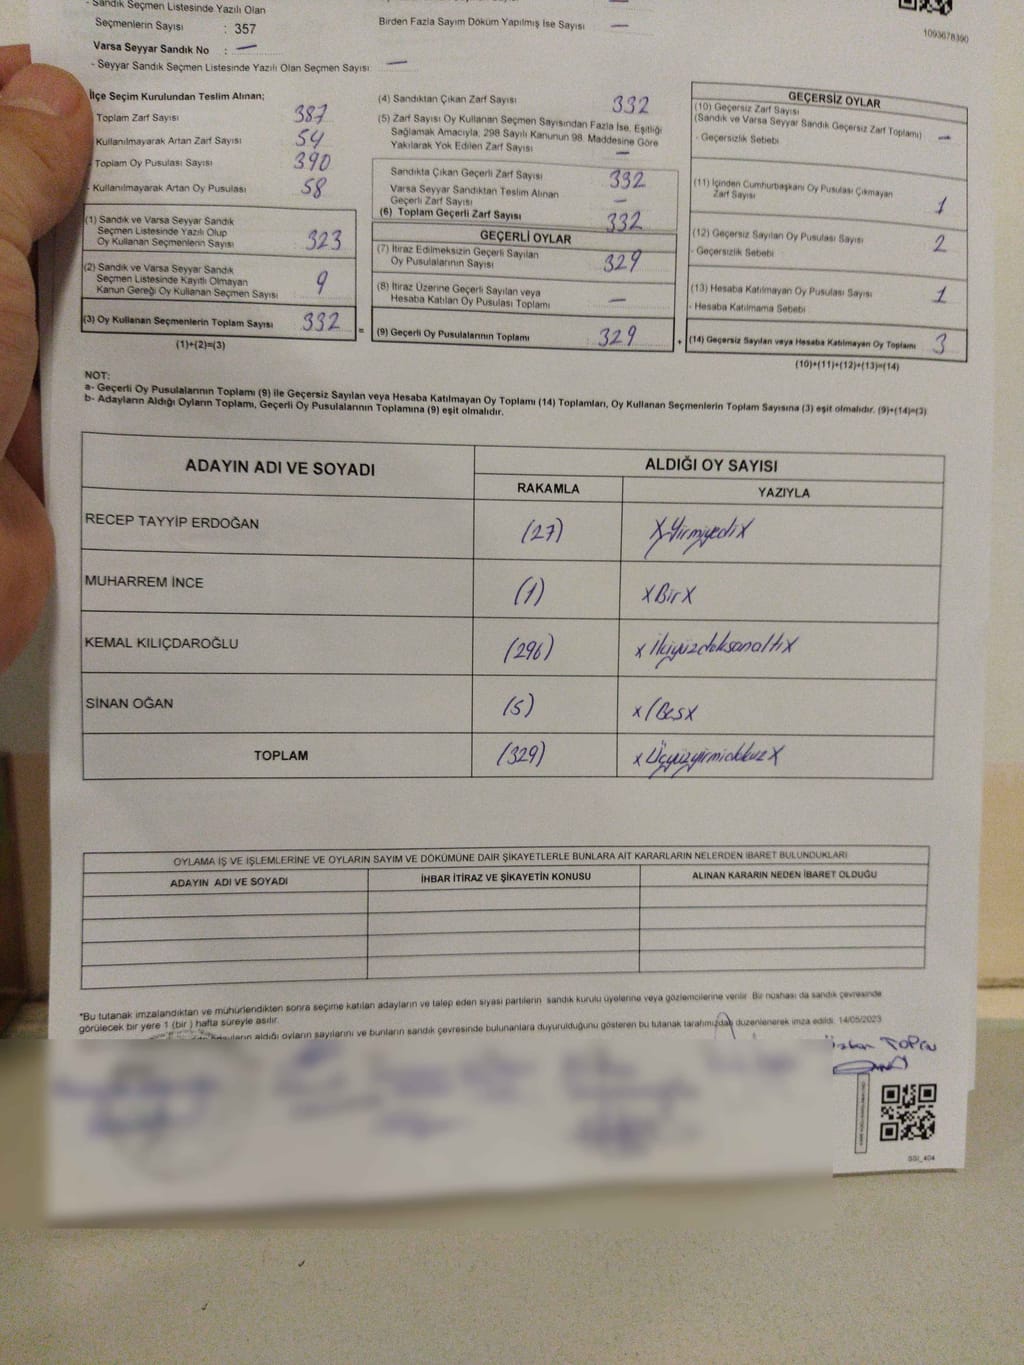 - Sandık Seçmen Listesinde Yazılı Olan
Seçmenlerin Sayısı : 357
Varsa Seyyar Sandık No : —
- Seyyar Sandık Seçmen Listesinde Yazılı Olan Seçmen Sayısı: —
Birden Fazla Sayım Döküm Yapılmış İse Sayısı —
1093678390
İlçe Seçim Kurulundan Teslim Alınan;
Toplam Zarf Sayısı 387
- Kullanılmayarak Artan Zarf Sayısı 54
- Toplam Oy Pusulası Sayısı 390
- Kullanılmayarak Artan Oy Pusulası 58
(1) Sandık ve Varsa Seyyar Sandık
Seçmen Listesinde Yazılı Olup
Oy Kullanan Seçmenlerin Sayısı 323
(2) Sandık ve Varsa Seyyar Sandık
Seçmen Listesinde Kayıtlı Olmayan
Kanun Gereği Oy Kullanan Seçmen Sayısı 9
(3) Oy Kullanan Seçmenlerin Toplam Sayısı 332 =
(1)+(2)=(3)
(4) Sandıktan Çıkan Zarf Sayısı 332
(5) Zarf Sayısı Oy Kullanan Seçmen Sayısından Fazla İse, Eşitliği
Sağlamak Amacıyla, 298 Sayılı Kanunun 98. Maddesine Göre
Yakılarak Yok Edilen Zarf Sayısı —
Sandıkta Çıkan Geçerli Zarf Sayısı 332
Varsa Seyyar Sandıktan Teslim Alınan
Geçerli Zarf Sayısı —
(6) Toplam Geçerli Zarf Sayısı 332
GEÇERLİ OYLAR
(7) İtiraz Edilmeksizin Geçerli Sayılan
Oy Pusulalarının Sayısı 329
(8) İtiraz Üzerine Geçerli Sayılan veya
Hesaba Katılan Oy Pusulası Toplamı —
(9) Geçerli Oy Pusulalarının Toplamı 329 +
GEÇERSİZ OYLAR
(10) Geçersiz Zarf Sayısı
(Sandık ve Varsa Seyyar Sandık Geçersiz Zarf Toplamı) —
- Geçersizlik Sebebi
(11) İçinden Cumhurbaşkanı Oy Pusulası Çıkmayan
Zarf Sayısı 1
(12) Geçersiz Sayılan Oy Pusulası Sayısı 2
- Geçersizlik Sebebi
(13) Hesaba Katılmayan Oy Pusulası Sayısı 1
- Hesaba Katılmama Sebebi
(14) Geçersiz Sayılan veya Hesaba Katılmayan Oy Toplamı 3
(10)+(11)+(12)+(13)=(14)
NOT:
a- Geçerli Oy Pusulalarının Toplamı (9) ile Geçersiz Sayılan veya Hesaba Katılmayan Oy Toplamı (14) Toplamları, Oy Kullanan Seçmenlerin Toplam Sayısına (3) eşit olmalıdır. (9)+(14)=(3)
b- Adayların Aldığı Oyların Toplamı, Geçerli Oy Pusulalarının Toplamına (9) eşit olmalıdır.
ADAYIN ADI VE SOYADI ALDIĞI OY SAYISI
RAKAMLA YAZIYLA
RECEP TAYYİP ERDOĞAN (27) X Yirmiyedi X
MUHARREM İNCE (1) X Bir X
KEMAL KILIÇDAROĞLU (296) x İkiyüzdoksanaltı X
SİNAN OĞAN (5) x (Beş x
TOPLAM (329) x Üçyüzyirmidokuz X
OYLAMA İŞ VE İŞLEMLERİNE VE OYLARIN SAYIM VE DÖKÜMÜNE DAİR ŞİKAYETLERLE BUNLARA AİT KARARLARIN NELERDEN İBARET BULUNDUKLARI
ADAYIN ADI VE SOYADI İHBAR İTİRAZ VE ŞİKAYETİN KONUSU ALINAN KARARIN NEDEN İBARET OLDUĞU
*Bu tutanak imzalandıktan ve mühürlendikten sonra seçime katılan adayların ve talep eden siyasi partilerin sandık kurulu üyelerine veya gözlemcilerine verilir. Bir nüshası da sandık çevresinde
görülecek bir yere 1 (bir) hafta süreyle asılır.
aldığı oyların sayılarını ve bunların sandık çevresinde bulunanlara duyurulduğunu gösteren bu tutanak tarafımızdan düzenlenerek imza edildi. 14/05/2023
SSİ_404